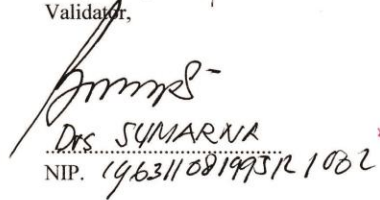 Validator,
Drs SUMARNA
NIP. 196311081995121002